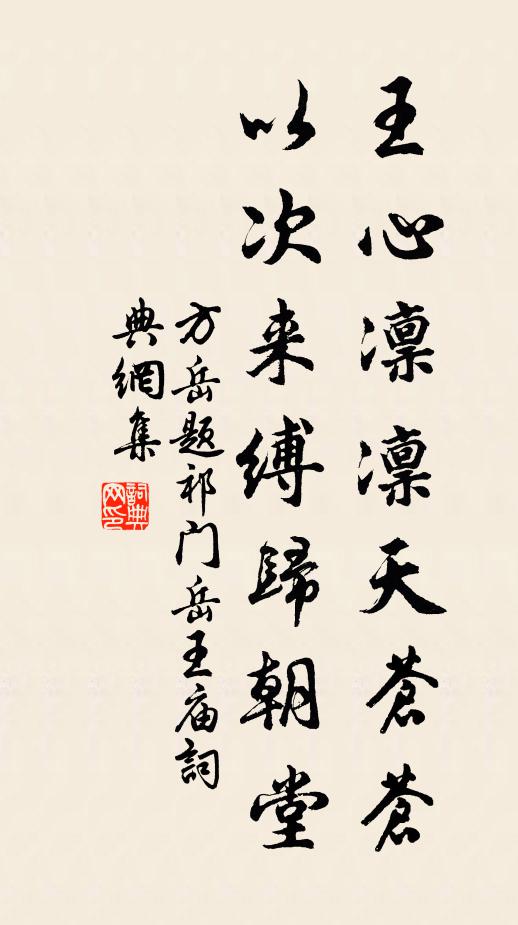 王心凛凛天蒼蒼
以次来縛歸朝堂
方岳题祁门岳王庙詞
典網集
詞典
网印